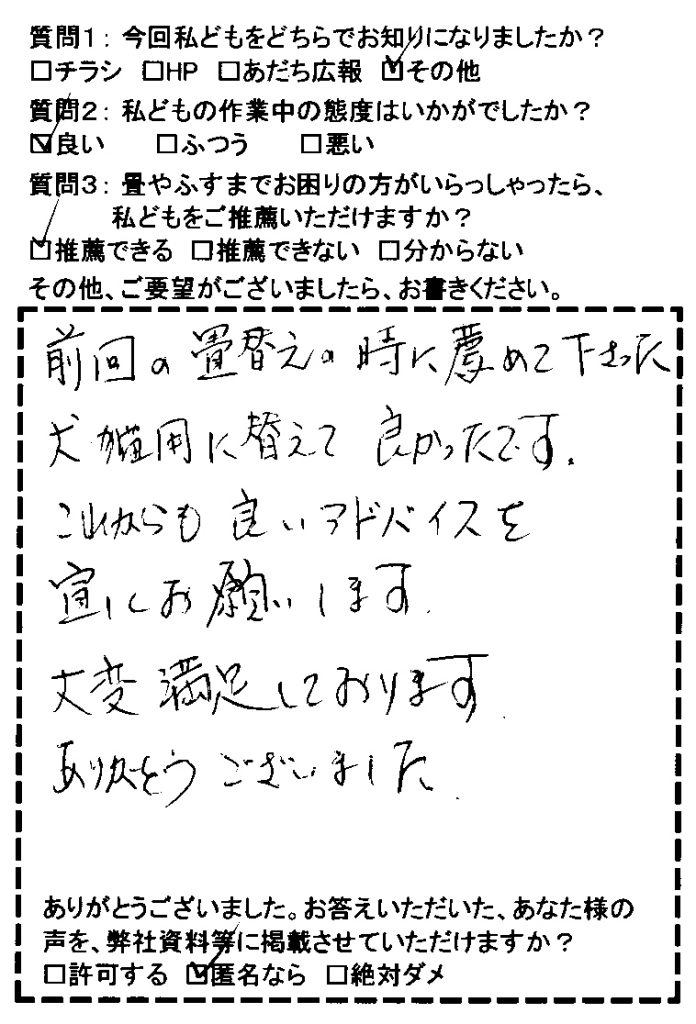 質問1：今回私どもをどちらでお知りになりましたか？
□チラシ □HP □あだち広報 ☑その他
質問2：私どもの作業中の態度はいかがでしたか？
☑良い □ふつう □悪い
質問3：畳やふすまでお困りの方がいらっしゃったら、
私どもをご推薦いただけますか？
☑推薦できる □推薦できない □分からない
その他、ご要望がございましたら、お書きください。
前回の畳替えの時に薦めて下さった
犬猫用に替えて良かったです．
これからも良いアドバイスを
宜しくお願いします．
大変満足しております
ありがとうございました．
ありがとうございました。お答えいただいた、あなた様の
声を、弊社資料等に掲載させていただけますか？
□許可する ☑匿名なら □絶対ダメ